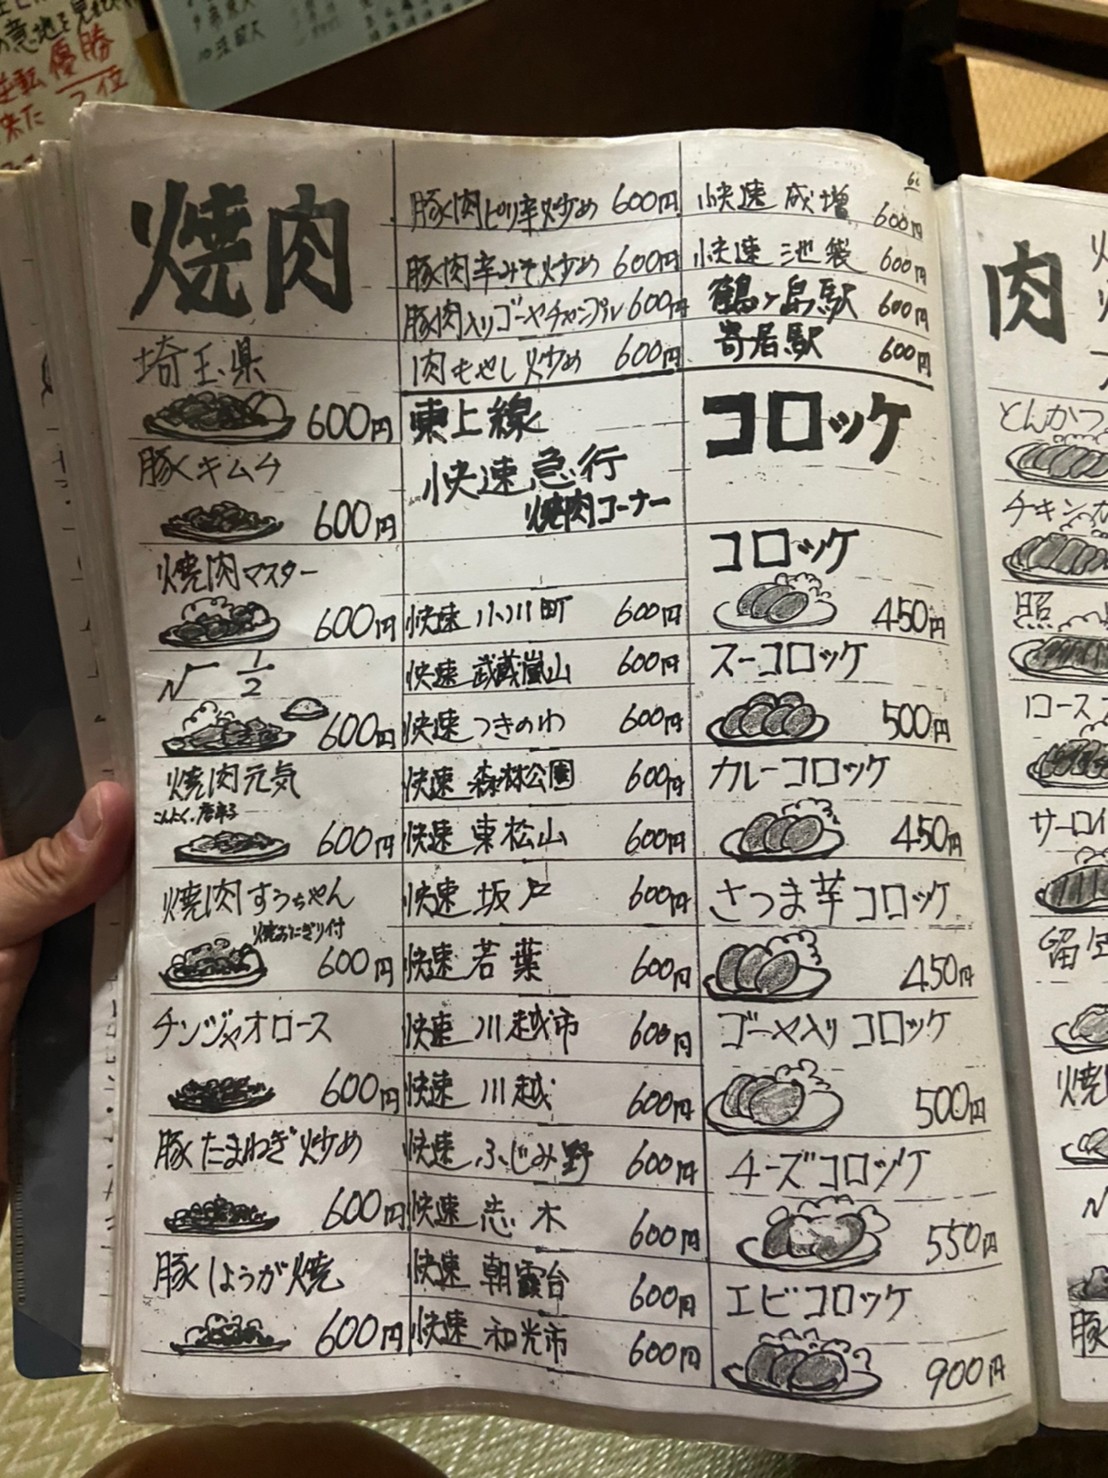 焼肉
埼玉県
600円
豚キムチ
600円
焼肉マスター
600円
〃 1/2
600円
焼肉元気
こんにゃく、唐辛子
600円
焼肉すうちゃん
焼おにぎり付
600円
チンジャオロース
600円
豚たまねぎ炒め
600円
豚しょうが焼
600円
豚肉ピリ辛炒め 600円
豚肉辛みそ炒め 600円
豚肉入りゴーヤチャンプル 600円
肉もやし炒め 600円
東上線
快速急行
焼肉コーナー
快速 小川町 600円
快速 武蔵嵐山 600円
快速 つきのわ 600円
快速 森林公園 600円
快速 東松山 600円
快速 坂戸 600円
快速 若葉 600円
快速 川越市 600円
快速 川越 600円
快速 ふじみ野 600円
快速 志木 600円
快速 朝霞台 600円
快速 和光市 600円
快速 成増 600円
快速 池袋 600円
鶴ヶ島駅 600円
寄居駅 600円
コロッケ
コロッケ
450円
スーコロッケ
500円
カレーコロッケ
450円
さつま芋コロッケ
450円
ゴーヤ入りコロッケ
500円
チーズコロッケ
550円
エビコロッケ
900円
肉
とんかつ
チキンカ
照
ロース
サーロイ
焼
豚
優勝